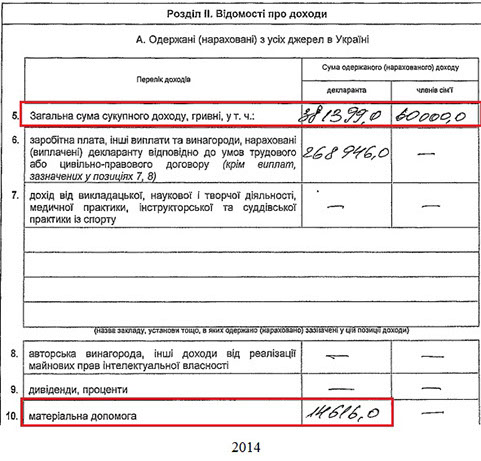 Розділ II. Відомості про доходи
А. Одержані (нараховані) з усіх джерел в Україні
Перелік доходів
Сума одержаного (нарахованого) доходу
декларанта
членів сім'ї
5. Загальна сума сукупного доходу, гривні, у т. ч.: 381399,0 60000,0
6. заробітна плата, інші виплати та винагороди, нараховані 268946,0 —
(виплачені) декларанту відповідно до умов трудового
або цивільно-правового договору (крім виплат,
зазначених у позиціях 7, 8)
7. дохід від викладацької, наукової і творчої діяльності, — —
медичної практики, інструкторської та суддівської
практики із спорту
(назва закладу, установи тощо, в яких одержано (нараховано) зазначені у цій позиції доходи)
8. авторська винагорода, інші доходи від реалізації — —
майнових прав інтелектуальної власності
9. дивіденди, проценти — —
10. матеріальна допомога 11616,0 —
2014